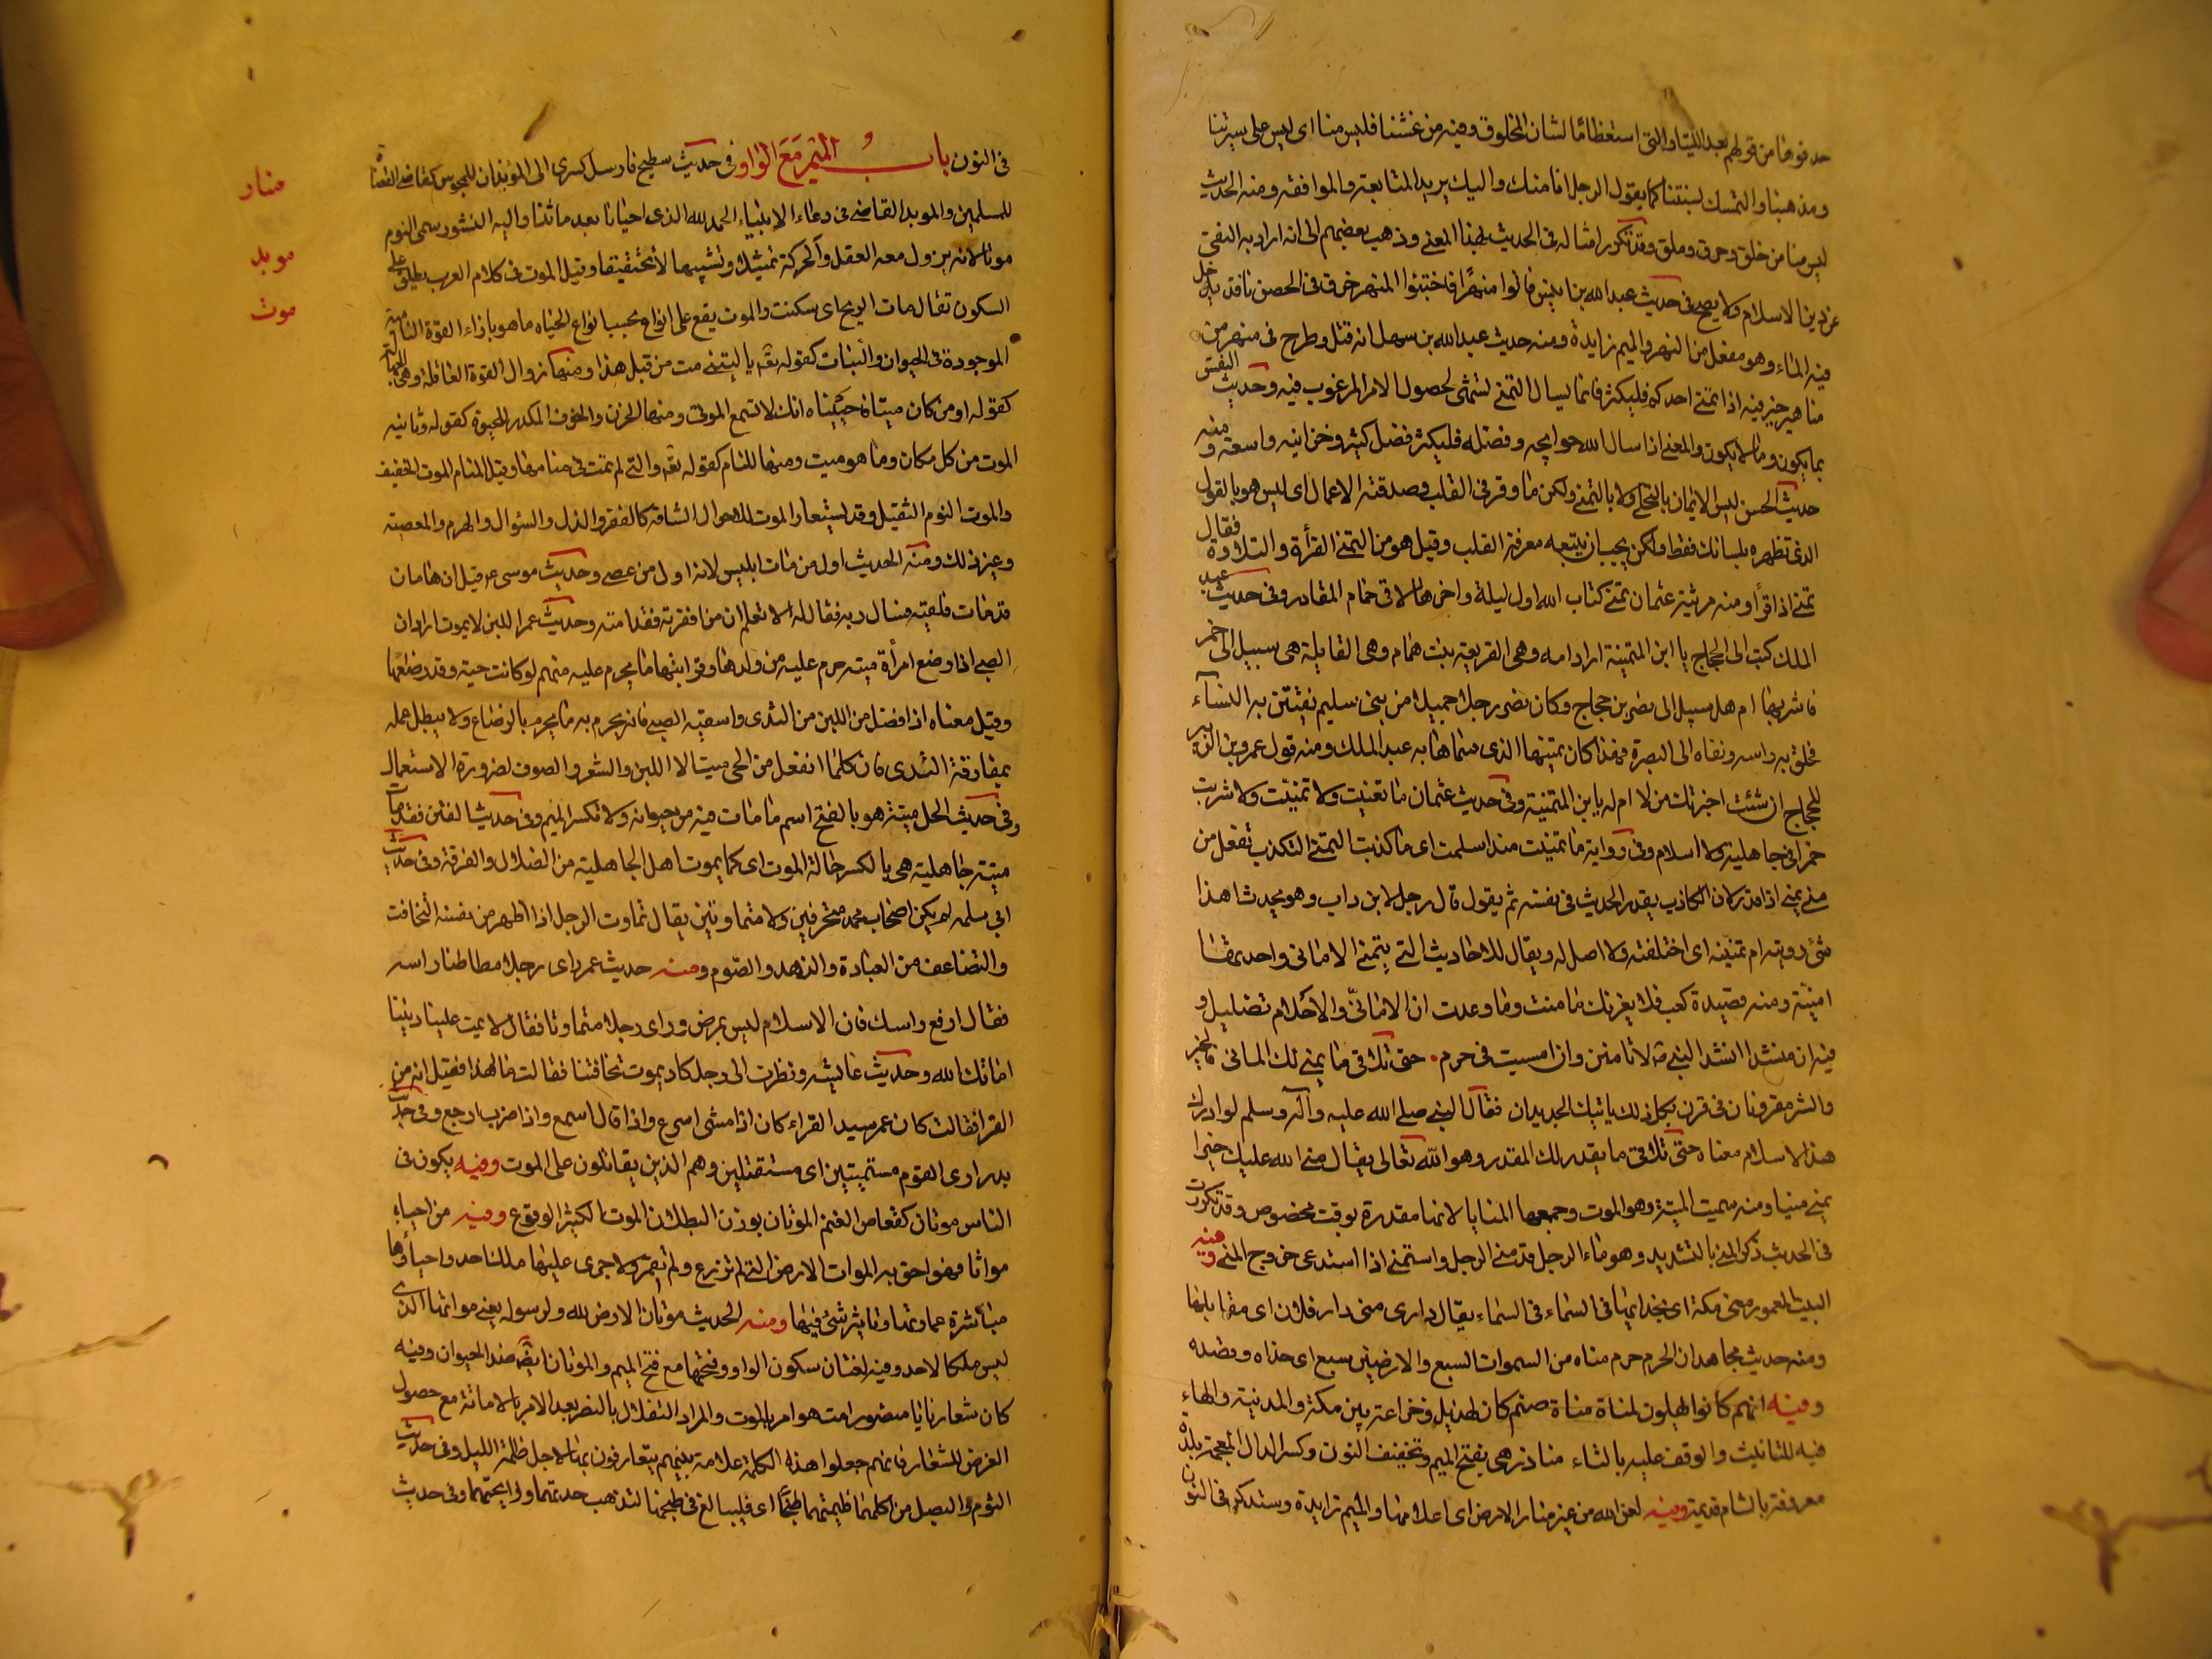 حدفوها من قولهم بعد اللتيا والتى استعظامًا لشان المخلوق وفيه من غشنا فليس منا اى ليس على سيرتنا
ومذهبنا والتمسك بسنتنا كما يقول الرجل انا منك واليك يريد المتابعة والموافقه ومنه الحديث
ليس منا من خلق وحرق وصلق وقد تكرر امثاله فى الحديث بهذا المعنى وذهب بعضهم الى انه اراد به النفى
عن دين الاسلام ولا يصح فى حديث عبد الله بن انيس فاتوا منهرًا فاختبئوا المنهر خرق فى الحصن نافذ يدخل
فيه الماء وهو مفعل من النهر والميم زايدة ومنه حديث عبد الله بن سهل انه قتل وطرح فى منهر من
مناهير خيبر فيه اذا تمنى احدكم فليكثر فانما يسال التمنى تشهى لحصول الامر المرغوب فيه وحديث النفس
بما يكون وما لا يكون والمعنى اذا سال الله حوايجه وفضله فليكثر فضل كثير وخزاينه واسعة ومنه
حديث الحسن ليس الايمان بالتحلى ولا بالتمنى ولكن ما وقر فى القلب وصدقته الاعمال اى ليس هو بالقول
الذى تظهره بلسانك فقط ولكن يجب ان يتبعه معرفة القلب وقيل هو من التمنى القرأة والتلاوة فقال
تمنى اذا قرأ ومنه مرثية عثمان تمنى كتاب الله اول ليلة واخرها لاقى حمام المقادر وفى حديث عبد
الملك كتب الى الحجاج يا ابن المتمنية اراد امه وهى الفريعة بنت همام وهى القايلة هل سبيل الى خمر
فاشربها ام هل سبيل الى نصر بن حجاج وكان نصر رجلا جميلا من بنى سليم يفتتن به النساء
فحلق به راسه ونفاه الى البصرة فهذا كان تمنيها الذى سماها به عبد الملك ومنه قول عمرو بن الزبير
للحجاج ان شئت اخبرتك من لا ام له يا بن المتمنية وفى حديث عثمان ما تغنيت ولا تمنيت ولا شربت
خمرا فى جاهلية ولا اسلام وفى رواية ما تمنيت منذ اسلمت اى ما كذبت التمنى التكذب تفعل من
منى يمنى اذا قدر لان الكاذب يقدر الحديث فى نفسه ثم يقول قال رجل لابن داب وهو يحدث اهذا
شئ رويته ام تمنيته اى اختلقته ولا اصل له ويقال للاحاديث التى يتمنى الامانى واحدتها
امنيّة ومنه قصيدة كعب فلا يغرنك ما منت وما وعدت ان الامانىّ والاحلام تضليل و
فيه ان منشدا انشد النبى صه لا تامنن وان امسيت فى حرم • حتى تلاقى ما يمنى لك المانى فالخير
والشر مقرونان فى قرن بكل ذلك ياتيك الجديدان فقال النبى صلى الله عليه وآله وسلم لو ادرك
هذا الاسلام معناه حتى تلاقى ما يقدر لك المقدر وهو الله تعالى يقال منى الله عليك خيرا
يمنى منيا ومنه سميت المنية وهو الموت وجمعها المنايا لانها مقدرة بوقت مخصوص وقد تكررت
فى الحديث ذكر المنى بالتشديد وهو ماء الرجل قد منى الرجل واستمنى اذا استدعى خروج المنى ومنه
البيت المعمور منى مكة اى بحذائها فى السماء فى السماء يقال دارى منى دار فلان اى مقابلها
ومنه حديث مجاهد ان الحرم حرم مناه من السموات السبع والارضين سبع اى حذاه وقصده
وفيه انهم كانوا يهلون لمناة مناة صنم كان لهذيل وخزاعة بين مكة والمدينة والهاء
فيه للتانيث والوقف عليه بالتاء مناذر هى بفتح الميم وتخفيف النون وكسر الدال المعجمة بلدة
معروفة بالشام قديمة وفيه لعن الله من غير منار الارض اى اعلامها والميم زايدة وستذكر فى النون
فى النون باب الميم مَعَ الواو فى حديث سطيح فارسل كسرى الى الموبذان للمجوس كقاضى القضاة
منار
للمسلمين والموبد القاضى فى دعاء الانبياء الحمد لله الذى احيانا بعد ماتنا واليه النشور سمى النوم
موبد
موتا لانه يزول معه العقل والحركة تمثيلا وتشبيها لا تحقيقا وقيل الموت فى كلام العرب يطلق على
موت
السكون تقال مات الريح اى سكنت والموت يقع على انواع بحسب انواع الحياه ما هو بازاء القوة النامية
الموجودة فى الحيوان والنبات كقوله تعا يا ليتنى مت من قبل هذا ومنها زوال القوة العاقلة وهى الجهالة
كقوله اومن كان ميتا فاحييناه انك لا تسمع الموتى ومنها الحزن والخوف المكدر للحيوة كقوله وثانيه
الموت من كل مكان وما هو ميت ومنها المنام كقوله تعا والتى لم تمت فى منامها وقيل المنام الموت الخفيف
والموت النوم الثقيل وقد يستعار الموت للاحوال الشاقة كالفقر والذل والسؤال والهرم والمعصية
وغير ذلك ومنه الحديث اول من مات ابليس لانه اول من عصى وحديث موسى ع قيل ان هامان
قد مات فلقيه فسال ربه فقال له الا تعلم ان من افقرته فقد امته وحديث عمر اللبن لا يموت اراد ان
الصبى اذا رضع امرأة ميتة حرم عليه من ولدها وقرابتها ما يحرم عليه منهم لو كانت حية وقد رضعها
وقيل معناه اذا فصل من اللبن من الثدى واسقيه الصبى فانه يحرم به ما يحرم بالرضاع ولا يبطل عمله
بمفارقة الثدى فان كلما انفصل من الحى ميت الا اللبن والشعر والصوف لضرورة الاستعمال
وفى حديث الحل ميتته هو بالفتح اسم ما مات فيه من حيوانه ولا تكسر الميم وفى حديث الفتن فقد مات
ميتة جاهلية هى بالكسر حالة الموت اى كما يموت اهل الجاهلية من الضلال والفرقة وفى حديث
ابي سلمه لم يكن اصحاب محمد متحزقين ولا متماوتين يقال تماوت الرجل اذا اظهر من نفسه التخافت
والتضاعف من العبادة والزهد والصوم ومنه حديث عمر راى رجلا مطاطئا راسه
فقال ارفع راسك فان الاسلام ليس بمرض وراى رجلا متماوتا فقال لا تمت علينا ديننا
اماتك الله وحديث عايشه ونظرت الى رجل كاد يموت تخافتا فقالت ما لهذا فقيل انه من
القرا فقالت كان عمر سيد القراء كان اذا مشى اسرع واذا قال اسمع واذا ضرب اوجع وفى حديث
بدر ارى القوم مستميتين اى مستقتلين وهم الذين يقاتلون على الموت وفيه يكون فى
الناس موتان كقعاص الغنم الموتان بوزن البطلان الموت الكثير الوقوع وفيه من احيا
مواتا فهو احق به الموات الارض التى لم تزرع ولم تعمر ولا جرى عليها ملك احد واحياؤها
مباشرة عمارتها وتاثير شئ فيها ومنه الحديث موتان الارض لله ولرسوله يعنى مواتها الذى
ليس ملكا لاحد وفيه لغتان سكون الواو وفتحها مع فتح الميم والموتان ايضا ضد الحيوان وفيه
كان شعارنا يا منصور امت هو امر بالموت والمراد التفاؤل بالنصر بعد الامر بالاماتة مع حصول
الغرض للشعار فانهم جعلوا هذه الكلمة علامة بينهم يتعارفون بها لاجل ظلمة الليل وفى حديث
الثوم والبصل من اكلهما فليمتهما طبخًا اى فليبالغ فى طبخهما لتذهب حدتهما ورايحتهما وفى حديث